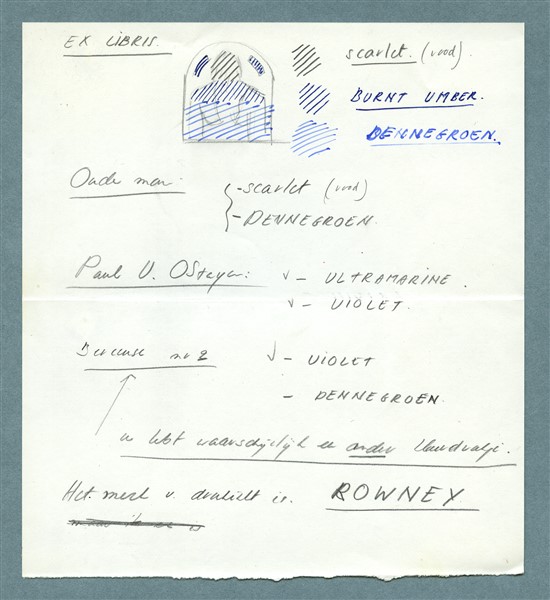 EX LIBRIS.
scarlet. (rood).
BURNT UMBER.
DENNEGROEN.
Oude man.
- scarlet (rood)
- DENNEGROEN.
Paul V. Ostayen:
√ - ULTRAMARINE.
√ - VIOLET.
Berceuse nr 2
√ - VIOLET
- DENNEGROEN.
u hebt waarschijnlijk een ander
Het merk v. drukinkt is. ROWNEY